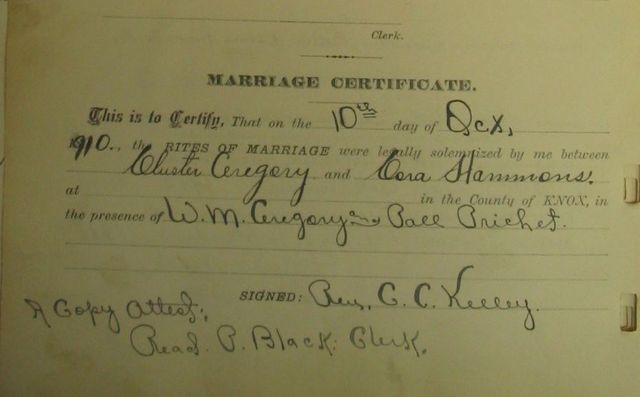 Clerk.
MARRIAGE CERTIFICATE.
This is to Certify, That on the 10th day of Ocx,
1910., the RITES OF MARRIAGE were legally solemnized by me between
Cluster Gregory and Cora Hammons.
at in the County of KNOX, in
the presence of W. M. Gregory & Pall Prichet.
SIGNED: Rev. C. C. Kelley.
A Copy Attest:
Read P. Black: Clerk.